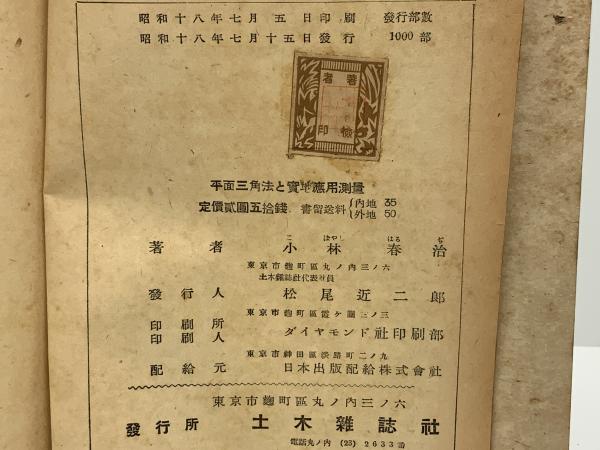 昭和十八年七月五日印刷 發行部數
昭和十八年七月十五日發行 1000部
著者
檢印
平面三角法と實地應用測量
定價貳圓五拾錢 書留送料{內地 35
外地 50
著者 小林春治
こばやし はる ぢ
東京市麴町區丸ノ內三ノ六
土木雜誌社代表社員
發行人 松尾近二郎
東京市麴町區霞ケ關三ノ三
印刷所
印刷人 ダイヤモンド社印刷部
東京市神田區淡路町二ノ九
配給元 日本出版配給株式會社
東京市麴町區丸ノ內三ノ六
發行所 土木雜誌社
電話丸ノ內 (23) 2633番